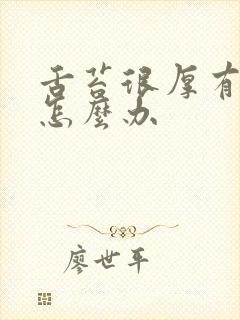 舌苔很厚有
怎麼办
廖世平